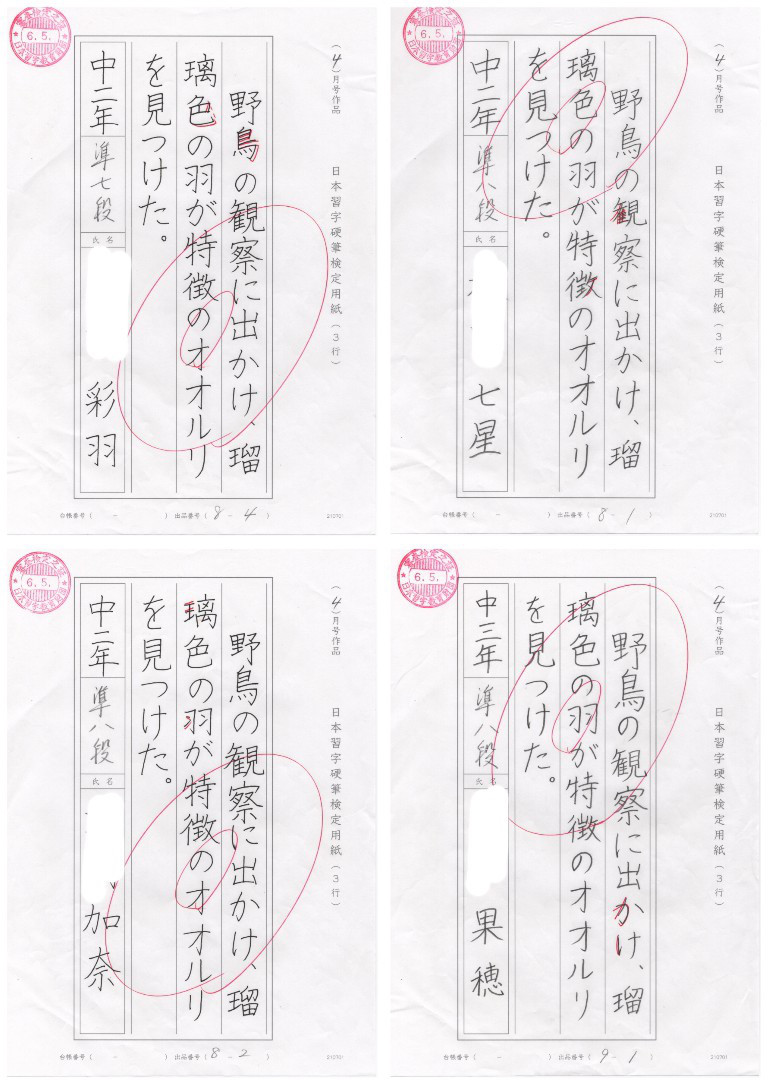 (4)月号作品
日本習字硬筆検定用紙(3行)
野鳥の観察に出かけ、瑠
璃色の羽が特徴のオオルリ
を見つけた。
中二年
準七段
氏名
彩羽
6.5.
日本習字教育財団
台帳番号( - ) 出品番号( 8 - 4 )
212701
(4)月号作品
日本習字硬筆検定用紙(3行)
野鳥の観察に出かけ、瑠
璃色の羽が特徴のオオルリ
を見つけた。
中二年
準八段
氏名
七星
6.5.
日本習字教育財団
台帳番号( - ) 出品番号( 8 - 1 )
212701
(4)月号作品
日本習字硬筆検定用紙(3行)
野鳥の観察に出かけ、瑠
璃色の羽が特徴のオオルリ
を見つけた。
中二年
準八段
氏名
加奈
6.5.
日本習字教育財団
台帳番号( - ) 出品番号( 8 - 2 )
212701
(4)月号作品
日本習字硬筆検定用紙(3行)
野鳥の観察に出かけ、瑠
璃色の羽が特徴のオオルリ
を見つけた。
中三年
準八段
氏名
果穂
6.5.
日本習字教育財団
台帳番号( - ) 出品番号( 9 - 1 )
212701